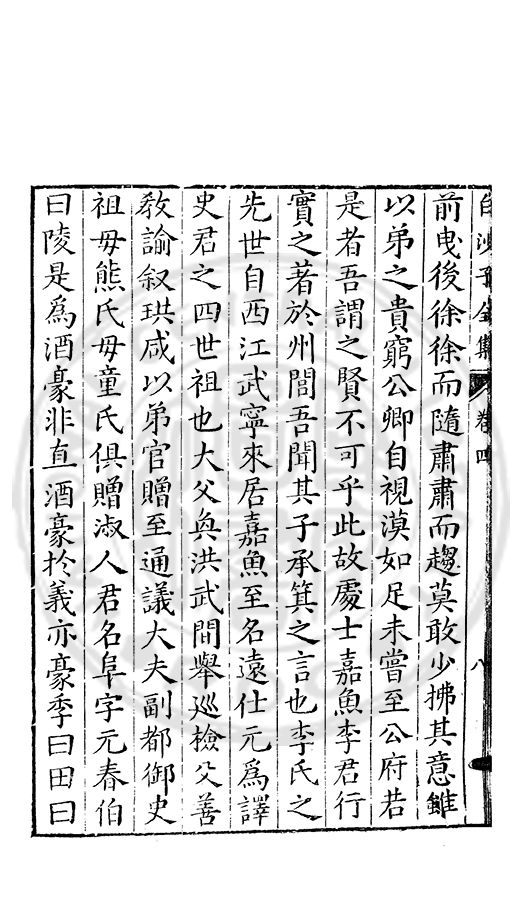 白沙子全集 卷四 八
前曳後徐徐而隨肅肅而趨莫敢少拂其意雖
以弟之貴窮公卿自視漠如足未嘗至公府若
是者吾謂之賢不可乎此故處士嘉魚李君行
實之著於州閭吾聞其子承箕之言也李氏之
先世自西江武寧來居嘉魚至名遠仕元爲譯
史君之四世祖也大父奐洪武間舉巡檢父善
教諭叙珙咸以弟官贈至通議大夫副都御史
祖母熊氏母童氏俱贈淑人君名阜字元春伯
曰陵是爲酒豪非直酒豪於義亦豪季曰田曰